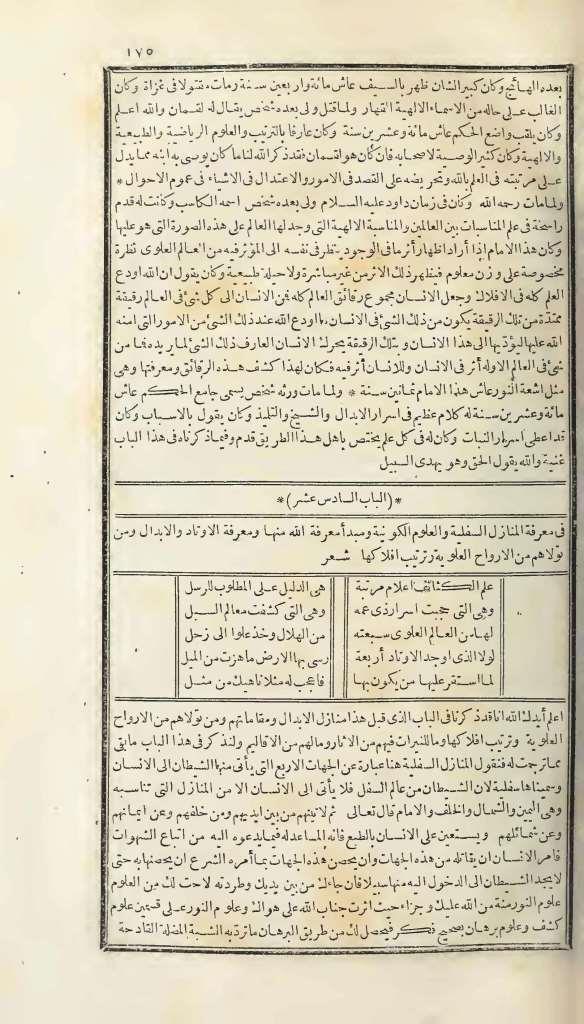 ١٧٥
بعده الهائج وكان كبير الشان ظهر بالسيف عاش مائة وأربعين سنة ومات مقتولا فى غزاة وكان
الغالب على حاله من الاسماء الالهية القهار ولما قتل ولى بعده شخص يقال له لقمان والله اعلم
وكان يلقب واضع الحكم عاش مائة وعشرين سنة وكان عارفا بالترتيب والعلوم الرياضية والطبيعية
والالهية وكان كثير الوصية لاصحابه فان كان هو لقمان فقد ذكر الله لنا ما كان يوصى به ابنه مما يدل
على مرتبته فى العلم بالله وتحريضه على القصد فى الامور والاعتدال فى الاشياء فى عموم الاحوال *
ولما مات رحمه الله وكان فى زمان داود عليه السلام ولى بعده شخص اسمه الكاسب وكانت له قدم
راسخة فى علم المناسبات بين العالمين والمناسبة الالهية التى وجد لها العالم على هذه الصورة التى هو عليها
وكان هذا الامام اذا أراد اظهار أثر ما فى الوجود ينظر فى نفسه الى المؤثر فيه من العالم العلوى نظرة
مخصوصة على وزن معلوم فيظهر ذلك الاثر من غير مباشرة ولا حيلة طبيعية وكان يقول ان الله اودع
العلم كله فى الافلاك وجعل الانسان مجموع رقائق العالم كله فمن الانسان الى كل شئ فى العالم رقيقة
ممتدة من تلك الرقيقة يكون من ذلك الشئ فى الانسان ما اودع الله عند ذلك الشئ من الامور التى امنه
الله عليها ليؤديها الى هذا الانسان وبتلك الرقيقة يحرك الانسان العارف ذلك الشئ لما يريده فما من
شئ فى العالم الا وله أثر فى الانسان وللانسان أثر فيه فكان لهذا كشف هذه الرقائق ومعرفتها وهى
مثل اشعة النور عاش هذا الامام ثمانين سنة * ولما مات ورثه شخص يسمى جامع الحكم عاش
مائة وعشرين سنة له كلام عظيم فى اسرار الابدال والشيخ والتلميذ وكان يقول بالاسباب وكان
قد اعطى اسرار النبات وكان له فى كل علم يختص باهل هذا الطريق قدم وفيما ذكرناه فى هذا الباب
غنية والله يقول الحق وهو يهدى السبيل
*(الباب السادس عشر)*
فى معرفة المنازل السفلية والعلوم الكونية ومبدأ معرفة الله منها ومعرفة الاوتاد والابدال ومن
تولاهم من الارواح العلوية وترتيب افلاكها شعر
علم الكثائف اعلام مرتبة هى الدليل على المطلوب للرسل
وهى التى حجبت اسرار ذى عمه وهى التى كشفت معالم السبل
لها من العالم العلوى سبعته من الهلال وخذ علوا الى زحل
لولا الذى اوجد الاوتاد أربعة رسى بها الارض ما هزت من الميل
لما استقر عليها من يكون بها فاعجب له مثلا ناهيك من مثل
اعلم أيدك الله انا قد ذكرنا فى الباب الذى قبل هذا منازل الابدال ومقاماتهم ومن تولاهم من الارواح
العلوية وترتيب افلاكها وما للنيرات فيهم من الاثار وما لهم من الاقاليم ولنذكر فى هذا الباب ما بقى
مما ترجمت له فنقول المنازل السفلية هنا عبارة عن الجهات الاربع التى يأتى منها الشيطان الى الانسان
وسميناها سفلية لان الشيطان من عالم السفل فلا يأتى الى الانسان الا من المنازل التى تناسبه
وهى اليمين والشمال والخلف والامام قال تعالى ثم لآتينهم من بين ايديهم ومن خلفهم وعن ايمانهم
وعن شمائلهم ويستعين على الانسان بالطبع فانه المساعد له فيما يدعوه اليه من اتباع الشهوات
فامر الانسان ان يقاتله من هذه الجهات وان يحصن هذه الجهات بما أمره الشرع ان يحصنها به حتى
لا يجد الشيطان الى الدخول اليه منها سبيلا فان جاءك من بين يديك وطردته لاحت لك من العلوم
علوم النور منة من الله عليك وجزاء حيث اثرت جناب الله على هواك وعلوم النور على قسمين علوم
كشف وعلوم برهان بصحيح فكر فيحصل لك من طريق البرهان ما ترد به الشبه المضلة القادحة